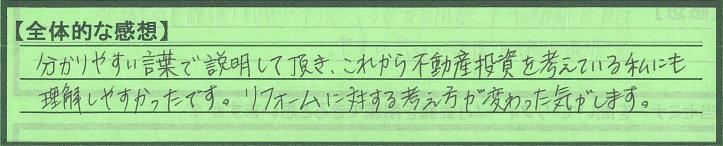 【全体的な感想】
分かりやすい言葉で説明して頂き、これから不動産投資を考えている私にも
理解しやすかったです。リフォームに対する考え方が変わった気がします。